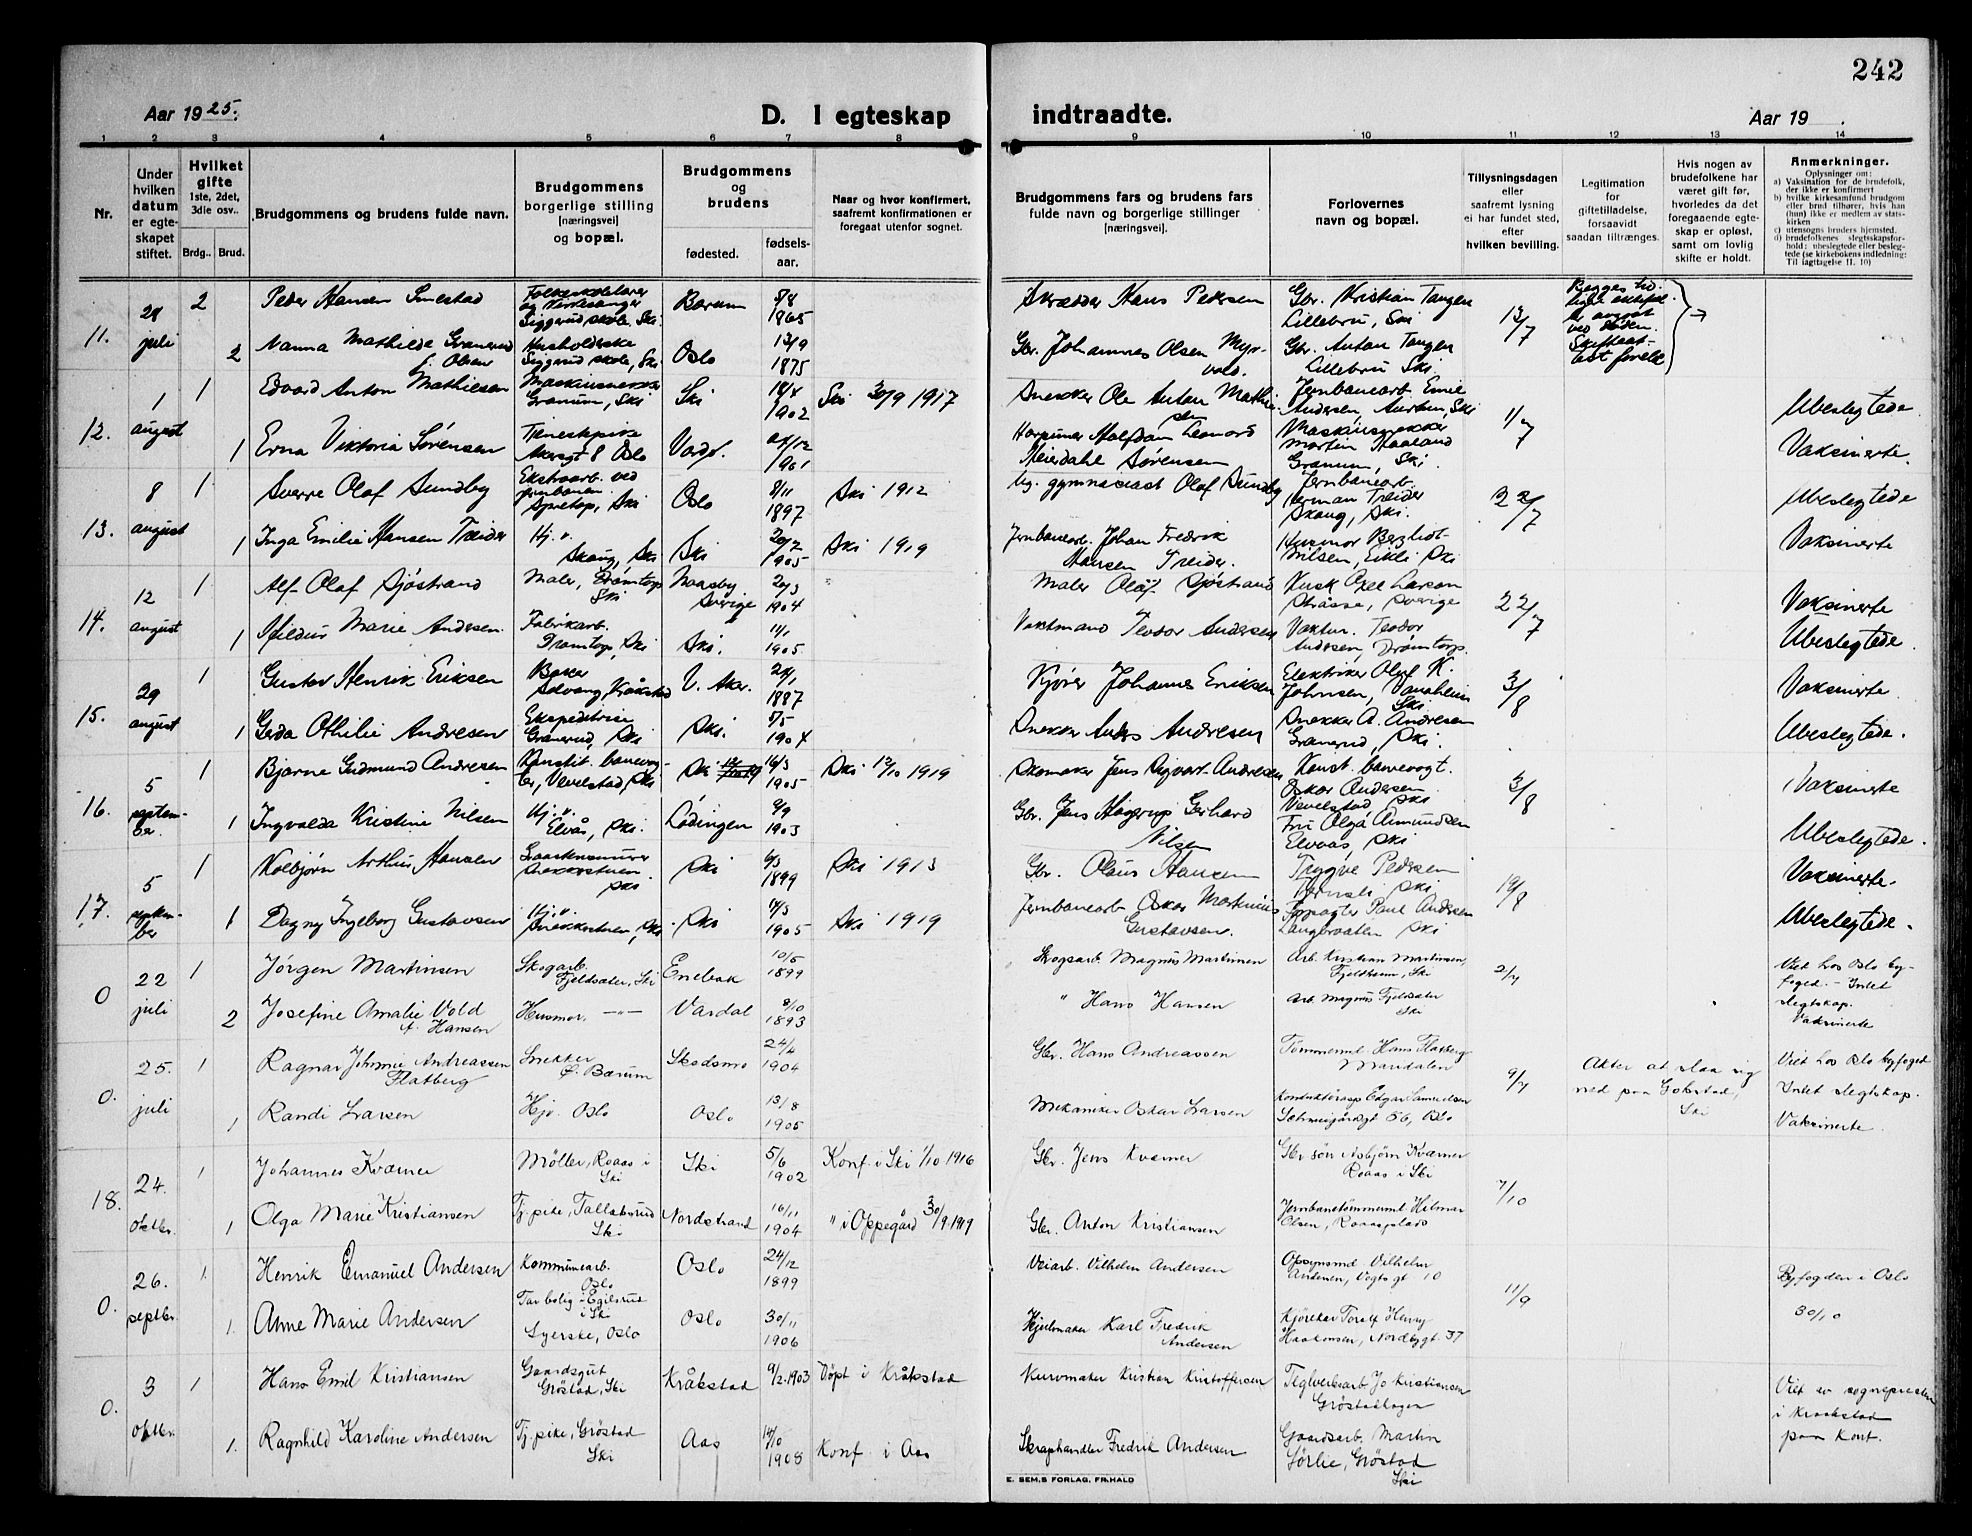 242
Aar 1925.
D. I egteskap
indtraadte.
Aar 19 .
1 2 3 4 5 6 7 8 9 10 11 12 13 14
Nr.
Under hvilken datum er egte-skapet stiftet.
Hvilket gifte
1ste, 2det, 3die osv..
Brdg.. Brud.
Brudgommens og brudens fulde navn.
Brudgommens borgerlige stilling [næringsvei] og bopæl.
Brudgommens og brudens
fødested.
fødsels-aar.
Naar og hvor konfirmert, saafremt konfirmationen er foregaat utenfor sognet.
Brudgommens fars og brudens fars fulde navn og borgerlige stillinger [næringsvei].
Forlovernes navn og bopæl.
Tillysningsdagen eller saafremt lysning ei har fundet sted, efter hvilken bevilling.
Legitimation for giftetilladelse, forsaavidt saadan tiltrænges.
Hvis nogen av brudefolkene har været gift før, hvorledes da det foregaaende egte-skap er opløst, samt om lovlig skifte er holdt.
Anmerkninger.
Oplysninger om:
a) Vaksination for de brudefolk, der ikke er konfirmert
b) hvilke kirkesamfund brudgom eller brud tilhører, hvis han (hun) ikke er medlem av stats-kirken
c) utensogns bruders hjemsted.
d) brudefolkenes slegtsskapsfor-hold; ubeslegtede eller besleg-tede (se kirkebokens indledning: Til iagttagelse II. 10)
11. 28 juli 2 Peder Hansen Smestad Siggerud skole, Ski Bærum 5/8 1865 Skrædder Hans Pedersen Gbr. Kristian Tangen Lillebru, Ski 13/7
2 Nanna Mathilde Granerud f. Olsen Husholderske Siggerud skole, Ski Oslo 13/9 1875 Gbr. Johannes Olsen Myr-vold. Gbr. Anton Tangen Lillebru Ski.
12. 1 august 1 Edvard Anton Mathiesen Granum, Ski Ski 18/4 1902 Ski 30/9 1917 Snekker Ole Anton Mathie-sen Jernbanearb. Emil Andersen, Ski 1/7 Ubeslegtede
1 Erna Viktoria Sørensen Tjenestepike Akersgt 8 Oslo Vadsø. 1901 Halfdan Leonard Meierdahl Sørensen Martin Haaland Granum, Ski. Vaksinerte.
13. 8 august 1 Sverre Olaf Sundby Ekstraarb. ved jernbanen. Ski Oslo 8/11 1897 Ski 1912 gymnasiast Olaf Sundby Jernbanearb. Herman Treider Skaug, Ski. 22/7 Ubeslegtede
1 Inga Emilie Hansen Treider Hj.v. Skaug, Ski Ski 1905 Ski 1919 Jernbanearb. Johan Fredrik Hansen Treider. Husmor Berghot Nilsen, Eikli Ski Vaksinerte
14. 12 august 1 Alf Olaf Sjöstrand Maler, Drømtorp Ski Sverige 20/3 1904 Maler Olaf Sjöstrand Axel Larson Sverige 22/7 Vaksinerte
1 Marie Andersen Fabrikarb. Drømtorp, Ski Ski. 11/1 1905. Vaktmand Teodor Andersen Vaktm. Teodor Andersen, Drømtorp. Ubeslegtede
15. 29 august 1 Gustav Henrik Eriksen Baker Kråkstad V. Aker. 1887 Kjører Johannes Eriksen Elektriker Olaf K. Johnsen, Vanaheim Ski 3/8 Vaksinerte
1 Gerda Othilie Andresen Ekspeditrise Granerud, Ski Ski. 5/5 1904 Snekker Anders Andresen Snekker A. Andresen Granerud, Ski. Ubeslegtede.
16. 5 septem-ber. 1 Bjarne Gudmund Andresen Konstit. banevog-ter, Vevelstad, Ski Ski 16/3 1905 Ski 12/10 1919 Skomaker Jens Sigvart Andresen Konst. banevogt. Oskar Andersen Vevelstad, Ski 3/8 Vaksinerte
1 Ingvalda Kristine Nilsen Hj.v. Elvås, Ski. Lödingen 9/9 1903 Gbr. Jens Hagerup Gerhard Nilsen Fru Olga Amundsen Elvaas, Ski Ubeslegtede.
17. 5 septem-ber 1 Kolbjørn Arthur Hansen Ski Ski 6/3 1899 Ski 1913 Gbr. Olaus Hansen Trygve Pedersen Ski 19/8 Vaksinerte.
1 Dagny Ingeborg Gustavsen Hj.v. Ski Ski 14/3 1905 Ski 1919 Jernbanearb. Oskar Martinius Gustavsen. Paul Andersen Langbraaten Ski Ubeslegtede.
0 22 juli 1 Jörgen Martinsen Skogarb. Fjeldsæter, Ski Enebak 10/5 1899 Skogsarb. Magnus Martinsen Arb. Kristian Martinsen, Fjeldheim, Ski 2/7 Viet hos Oslo by-foged. - Intet slegtskap. Vaksinerte
2 Josefine Amalie Vold f. Hansen Husmor. —"— Vardal 8/10 1893 " Hans Hansen Arb. Magnus Fjeldsæter Ski
0. 25. juli 1 Ragnar Johnnie Andreassen Flatberg Snekker Ø. Bærum Skedsmo 24/4 1904 Gbr. Hans Andreassen Tømmerml. Hans Flatberg Maridalen 9/7 Akter at slaa sig ned paa Gobstad, Ski Viet hos Oslo byfoged Intet slegtskap.
1 Randi Larsen Hjv. Oslo Oslo 13/8 1905 Mekaniker Oskar Larsen Edgar Samuelsen 56, Oslo Vaksinerte
18. 24. oktbr. 1 Johannes Kværner Möller, Roaas i Ski Ski 5/6 1902 Konf. i Ski 1/10 1916 Gbr. Jens Kværner Gbr sön Asbjörn Kværner Roaas i Ski 7/10
1 Olga Marie Kristiansen Tj.pike, Tallaksrud Ski Nordstrand 16/11 1904 " i Oppegård 30/9 1919 Gbr. Anton Kristiansen Jernbanetömmerml Hilmar Olsen, Roaasplads
0. 26. septbr. 1. Henrik Emanuel Andersen Kommunearb. Oslo Oslo 24/12 1899 Veiarb. Vilhelm Andersen Opsynsmd Vilhelm Andersen, Vogtsgt 10 11/9 Byfogden i Oslo 30/10
1. Anne Marie Andersen Tar bolig i Egilsrud i Ski Syerske, Oslo Oslo 30/11 1906 Hjulmaker Karl Fredrik Andersen Kjörekar Toralf Henry Haakonsen, Nordbygt 37
0. 3 oktbr. 1 Hans Emil Kristiansen Gaardsgut Gröstad, Ski Kråkstad 9/2.1903 Döpt i Kråkstad Kurvmaker Kristian Kristoffersen Teglverksarb Jo Kristiansen Gröstadhagen Viet av sognepresten i Kraakstad paa Kont.
1. Ragnhild Karoline Andersen Tj.pike, Gröstad Ski Aas 14/10 1908 Konf. i Aas Skraphandler Fredrik Andersen Gaardsarb. Martin Sörlie, Gröstad Ski
E. SEM.S FORLAG, FR.HALD